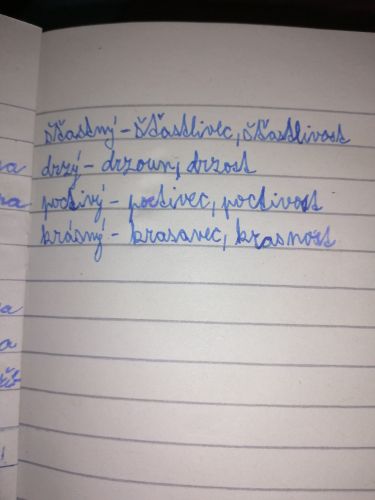 šťastný - šťastlivec, šťastlivost
drzý - drzoun, drzost
poctivý - poctivec, poctivost
krásný - krasavec, krasnost